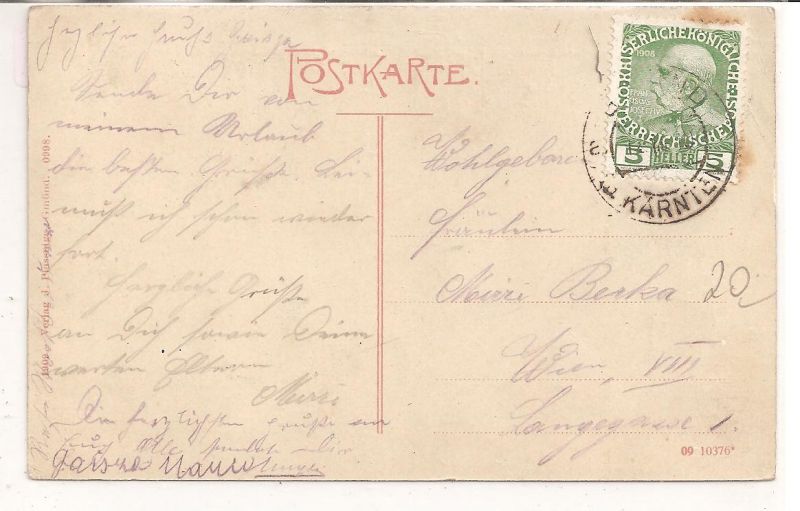 POSTKARTE.
Sende Dir von
meinem Urlaub
die besten Grüße. Lei-
muß ich schon wieder
fort.
Herzliche Grüße
an Dich sowie Deine
werten Eltern
Mizzi
Die herzlichsten Grüße an
Euch Alle sendet Dir
1909 Verlag J. Gmünd. 0998.
1908
ÖSTERREICHISCHE POST
KAISERLICHEKÖNIGLICHE
FRANZ
JOSEF I
5 HELLER 5
KÄRNTEN
Wohlgeboren
Fräulein
Mizzi Berka
20
Wien, VIII
Langegasse 1.
09 10376*